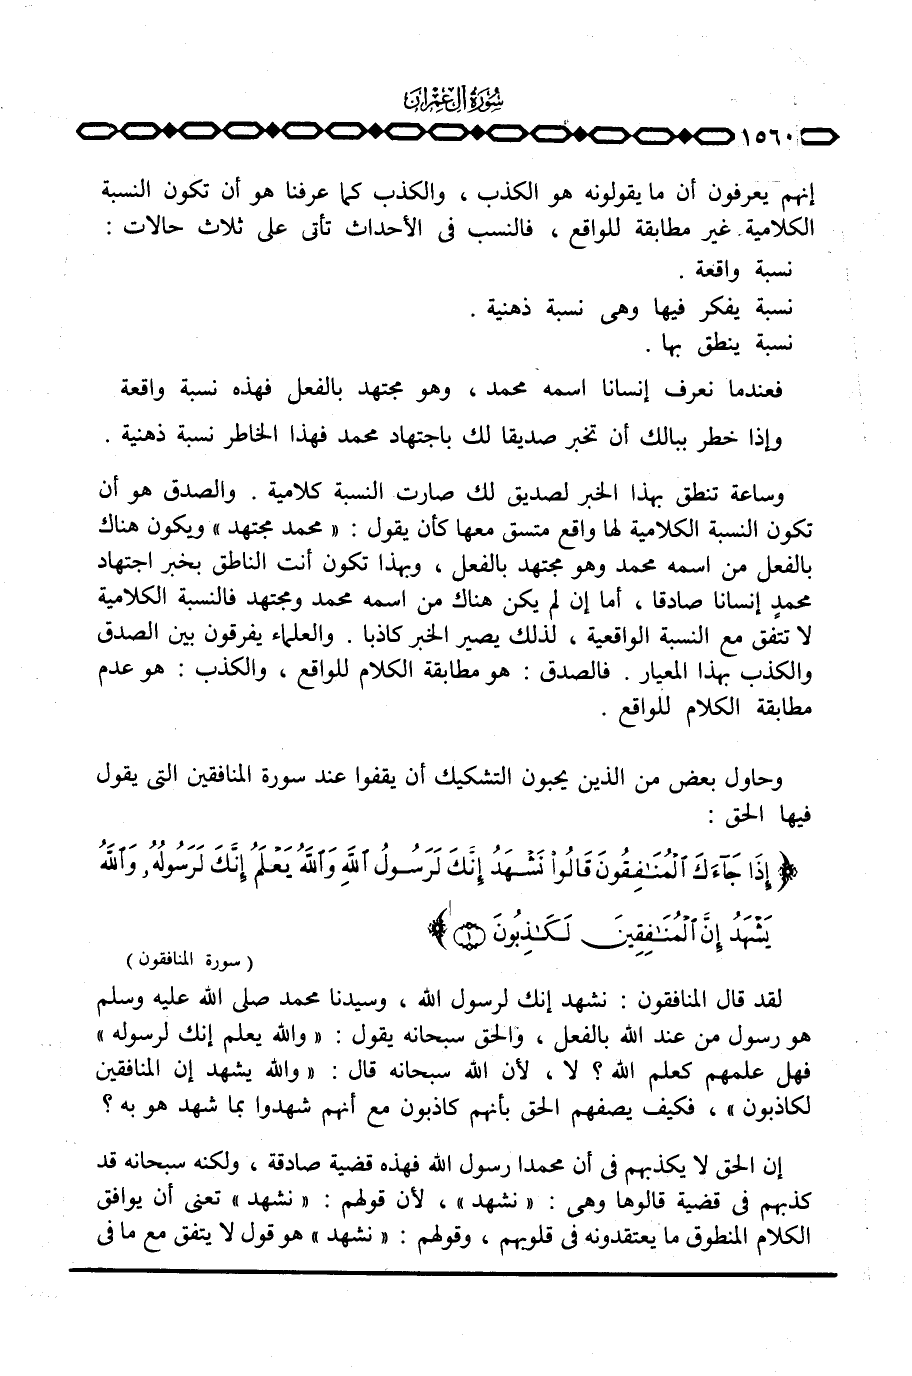 سورة آل عمران
١٥٦٠
إنهم يعرفون أن ما يقولونه هو الكذب ، والكذب كما عرفنا هو أن تكون النسبة
الكلامية غير مطابقة للواقع ، فالنسب فى الأحداث تأتى على ثلاث حالات :
نسبة واقعة .
نسبة يفكر فيها وهى نسبة ذهنية .
نسبة ينطق بها .
فعندما نعرف إنسانا اسمه محمد ، وهو مجتهد بالفعل فهذه نسبة واقعة
وإذا خطر ببالك أن تخبر صديقا لك باجتهاد محمد فهذا الخاطر نسبة ذهنية .
وساعة تنطق بهذا الخبر لصديق لك صارت النسبة كلامية . والصدق هو أن
تكون النسبة الكلامية لها واقع متسق معها كأن يقول : « محمد مجتهد » ويكون هناك
بالفعل من اسمه محمد وهو مجتهد بالفعل ، وبهذا تكون أنت الناطق بخبر اجتهاد
محمدٍ إنسانا صادقا ، أما إن لم يكن هناك من اسمه محمد ومجتهد فالنسبة الكلامية
لا تتفق مع النسبة الواقعية ، لذلك يصير الخبر كاذبا . والعلماء يفرقون بين الصدق
والكذب بهذا المعيار . فالصدق : هو مطابقة الكلام للواقع ، والكذب : هو عدم
مطابقة الكلام للواقع .
وحاول بعض من الذين يحبون التشكيك أن يقفوا عند سورة المنافقين التى يقول
فيها الحق :
﴿ إِذَا جَآءَكَ ٱلْمُنَٰفِقُونَ قَالُوا۟ نَشْهَدُ إِنَّكَ لَرَسُولُ ٱللَّهِ وَٱللَّهُ يَعْلَمُ إِنَّكَ لَرَسُولُهُۥ وَٱللَّهُ
يَشْهَدُ إِنَّ ٱلْمُنَٰفِقِينَ لَكَٰذِبُونَ ۝١ ﴾
( سورة المنافقون )
لقد قال المنافقون : نشهد إنك لرسول الله ، وسيدنا محمد صلى الله عليه وسلم
هو رسول من عند الله بالفعل ، والحق سبحانه يقول : « والله يعلم إنك لرسوله »
فهل علمهم كعلم الله ؟ لا ، لأن الله سبحانه قال : « والله يشهد إن المنافقين
لكاذبون » ، فكيف يصفهم الحق بأنهم كاذبون مع أنهم شهدوا بما شهد هو به ؟
إن الحق لا يكذبهم فى أن محمدا رسول الله فهذه قضية صادقة ، ولكنه سبحانه قد
كذبهم فى قضية قالوها وهى : « نشهد » ، لأن قولهم : « نشهد » تعنى أن يوافق
الكلام المنطوق ما يعتقدونه فى قلوبهم ، وقولهم : « نشهد » هو قول لا يتفق مع ما فى